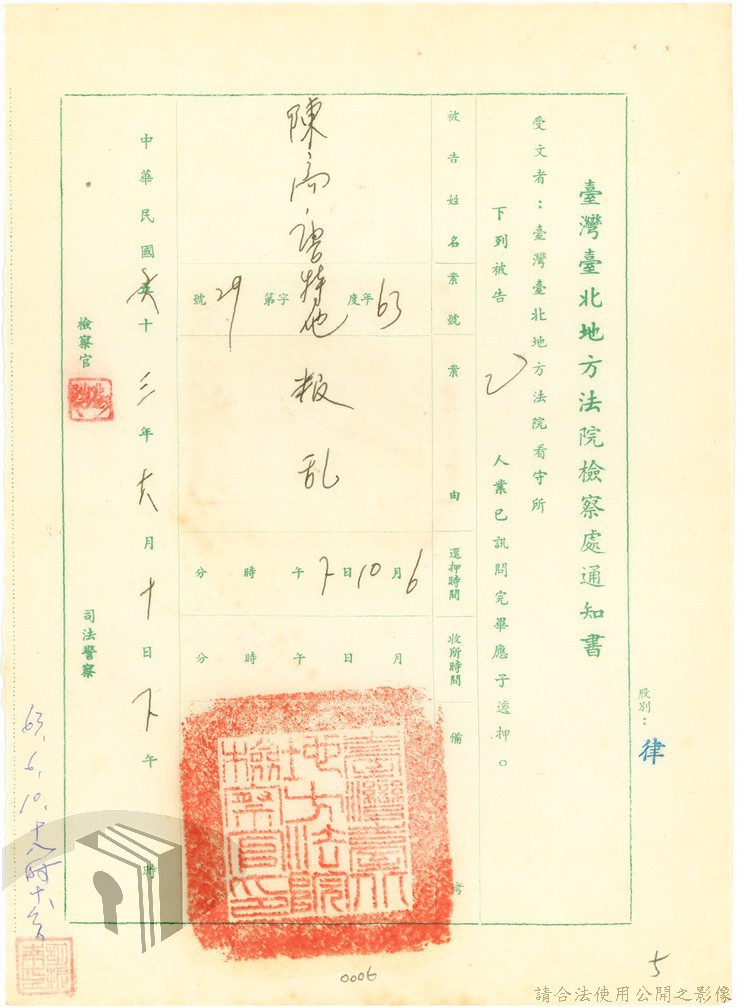 股別：律
臺灣臺北地方法院檢察處通知書
受文者：臺灣臺北地方法院看守所
下列被告 乙 人業已訊問完畢應予還押。
被告姓名
案號
案由
還押時間
收所時間
備考
陳
63年度 特他 字第 29 號
叛乱
6月10日下午 時 分
月 日 午 時 分
臺灣臺北地方法院檢察官印
中華民國 六十三年 六月十日下午 時
檢察官
司法警察
63.6.10.十八時十分
5
0006
請合法使用公開之影像